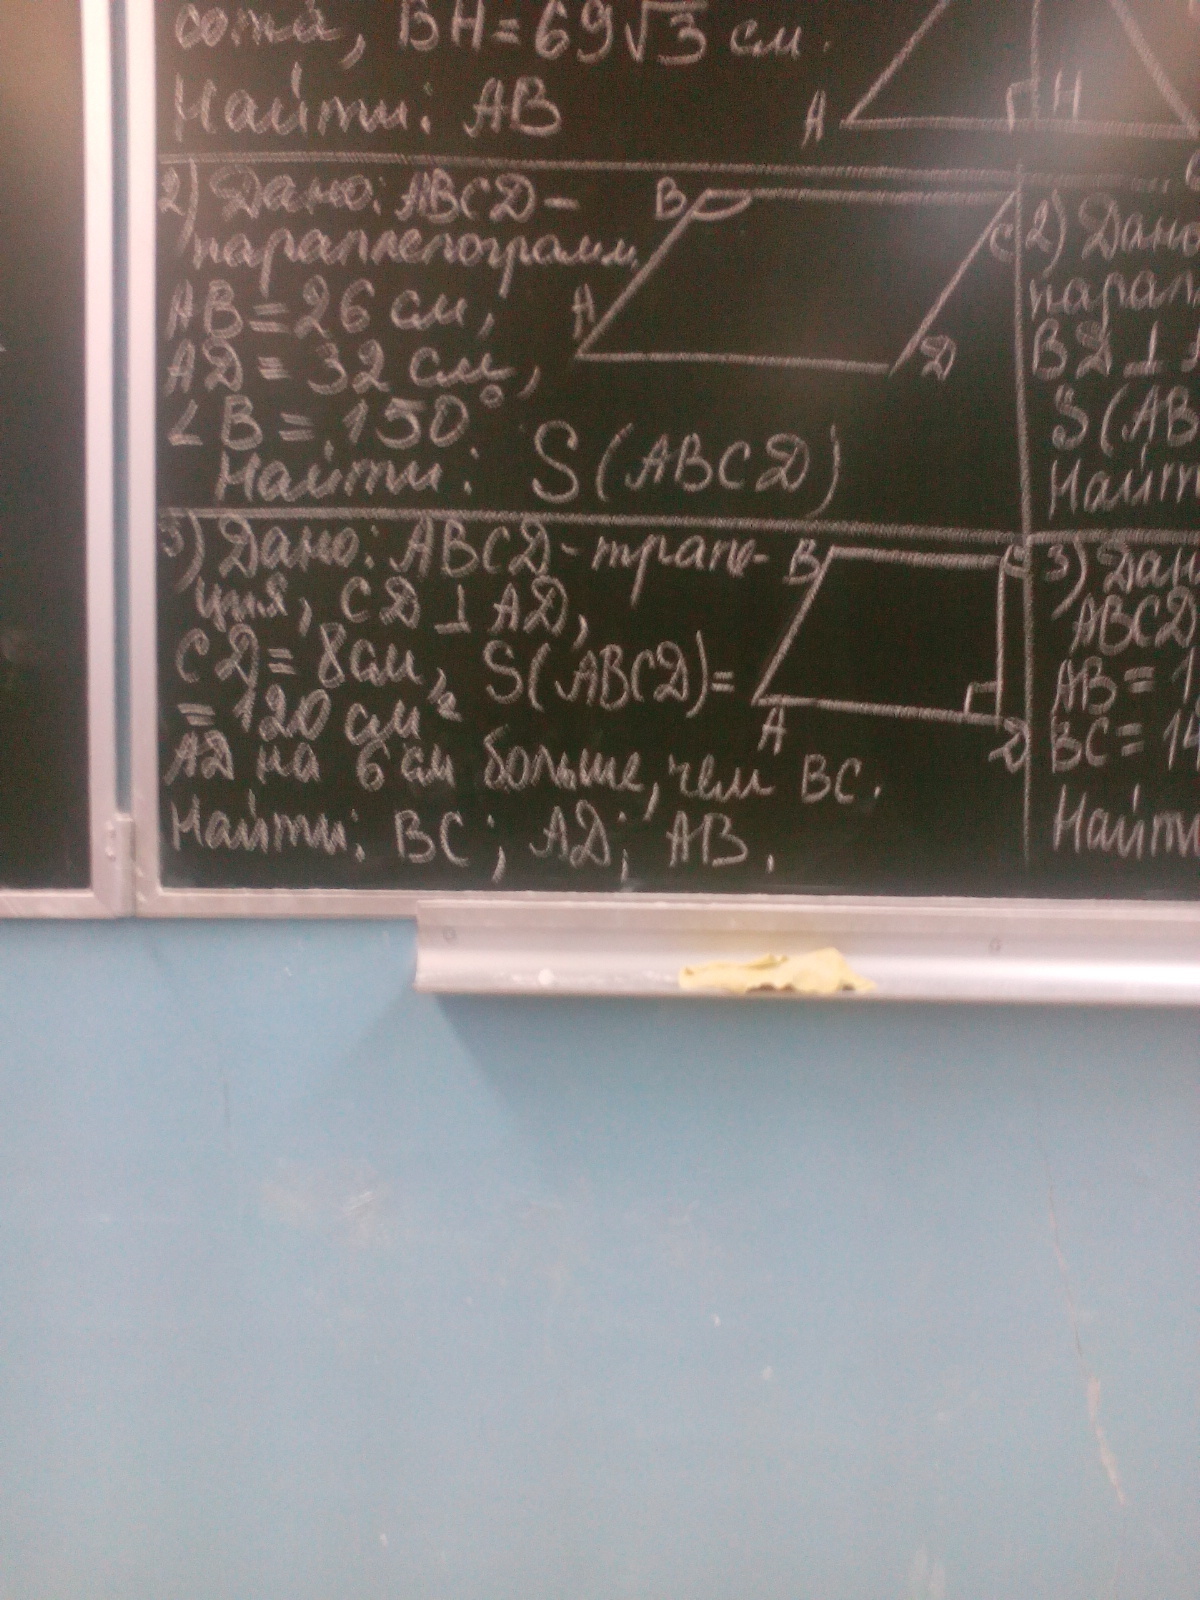 сота, BH = 69√3 см.
Найти: AB
A
H
2) Дано: ABCD –
параллелограмм,
AB = 26 см,
AD = 32 см,
∠B = 150°
Найти: S(ABCD)
B
A
C
D
3) Дано: ABCD - трапе-
ция, CD ⊥ AD,
CD = 8 см, S(ABCD) =
= 120 см²
AD на 6 см больше, чем BC.
Найти: BC; AD; AB.
B
C
A
D
2) Дано
парал
BD ⊥
S(AB
Найт
3) Дан
ABCD
AB = 1
BC = 14
Найти